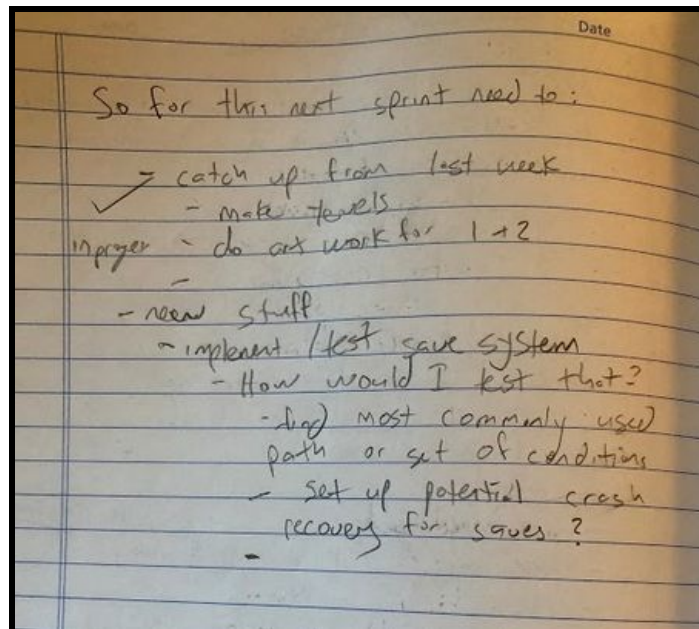 Date
So for this next sprint need to:
- catch up from last week
- make levels
in - do art work for 1 + 2
-
- new stuff
- implement / test save system
- How would I test that?
- find most commonly used
path or set of conditions
- set up potential crash
recovery for saves ?
-